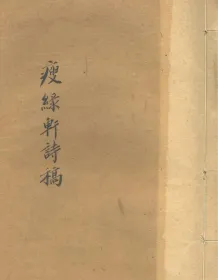 瘦緑軒詩稿